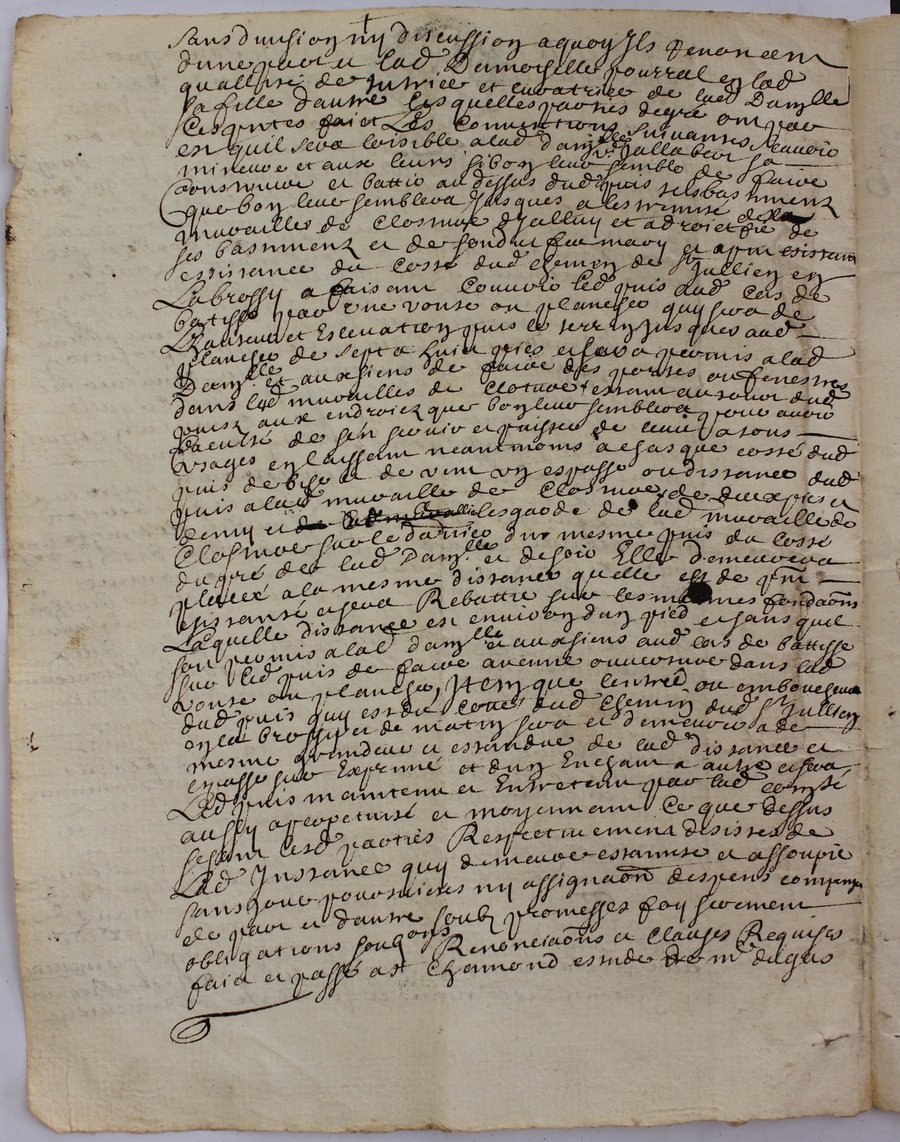 sans division ny discussion a quoy Ils renoncent
d'une part et lad Damoiselle pourral en lad
quallité de tutrice et curatrice de lad Dam^lle
sa fille d'autre Lesquelles parties degré ont par
Ces pntes fait Les Conventions suivantes
est quil sera loisible a lad dam^lle
et aux leurs si bon leur semble de faire
construire et battir au dessus dud puis tels bastiments
que bon leur semblera Jusques a lestremité de la
murailles de Closture
ses bastiments et de
essistance du costé dud chemin de S^t Jullien en
Labrossy a faisant couvrir led puis aud cas de
batisse par une voute ou plancher quy sera de
haulteur et Eslevation puis le terrin Jusques aud
plancher de sept a huit pies et sera permis a lad
Dam^lle et aux siens de faire des portes ou fenestres
dans lesd murailles de Closture estant autour dud
puis aux endroietz que bon leur semblera pour avoir
faculté de sen servir et puiser de leau a tous
Usages en laissant neantmoins a chasque costé dud
puis de bise et de vent un espasse ou distance dud
puis a lad muraille de Closture de deux pies et
demy et lesgard de lad muraille de
Closture sur le darrier dud mesme puis du costé
du pré de lad Dam^lle et de soir Elle demeurera
placée a la mesme distance quelle est de pnt
essistante et sera Rebattie sur les mesmes fondaons
Laquelle distance est environ dun pied et sans quil
soit permis a lad dam^lle et aux siens aud cas de battisse
sur led puis de faire aucune ouverture dans lad
voute ou plancher, Item que lentrée ou embouchure
dud puis quy est du costé dud chemin dud S^t Jullien
en la brossy et de matin sera et demeurera de
mesme grandeur et estandue de lad distance et
espasse sus Exprimé et dun Enchant a autre et sera
Led puis maintenu et Entretenu par lad
aussy a perpetuité et moyennant Ce que dessus
se sont lesd parties Respectivement desistes de
Lad Instance quy demeure estainte et assoupie
sans pour poursuittes ny assignaon despens compensés
de part et dautre soubz promesses foy serement
obligations Renonciaons et Clauses Requises
faict et passé a S^t Chamond estude de m^e dugas